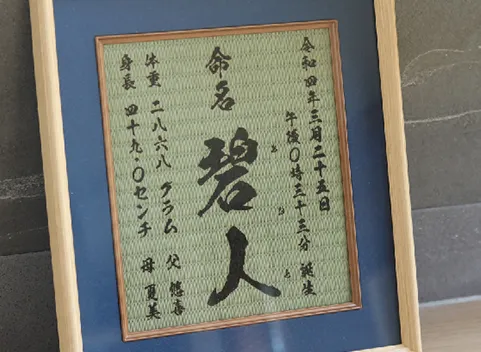 令和四年三月二十五日
午後〇時三十三分 誕生
命名 碧人
あおと
体重 二八六八グラム 父 悠喜
身長 四十九・〇センチ 母 夏美